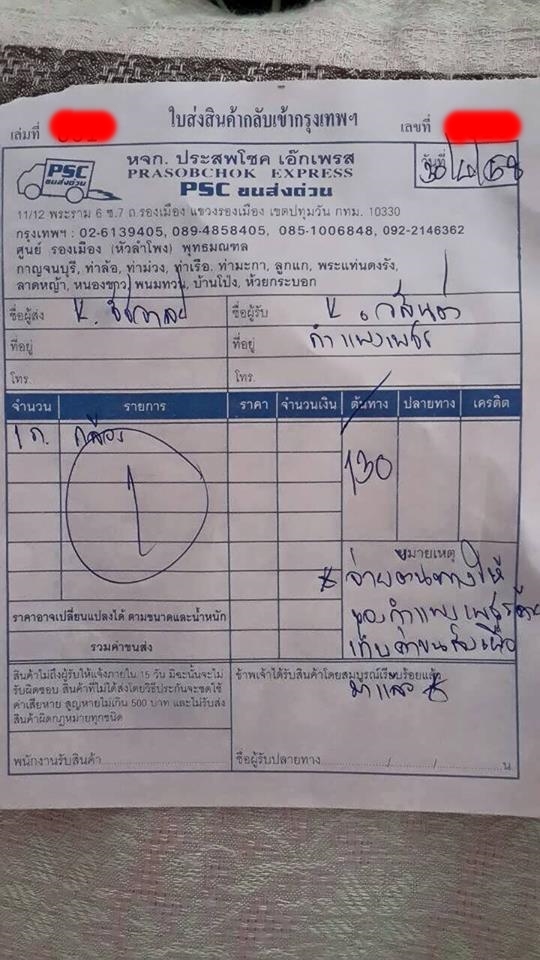 ใบส่งสินค้ากลับเข้ากรุงเทพฯ
เล่มที่
เลขที่
วันที่
PSC
ขนส่งด่วน
หจก. ประสพโชค เอ๊กเพรส
PRASOBCHOK EXPRESS
PSC ขนส่งด่วน
11/12 พระราม 6 ซ.7 ถ.รองเมือง แขวงรองเมือง เขตปทุมวัน กทม. 10330
กรุงเทพฯ : 02-6139405, 089-4858405, 085-1006848, 092-2146362
ศูนย์ รองเมือง (หัวลำโพง) พุทธมณฑล
กาญจนบุรี, ท่าล้อ, ท่าม่วง, ท่าเรือ. ท่ามะกา, ลูกแก, พระแท่นดงรัง,
ลาดหญ้า, หนองขาว, พนมทวน, บ้านโป่ง, ห้วยกระบอก
ชื่อผู้ส่ง ชื่อผู้รับ
ที่อยู่ ที่อยู่ กำแพงเพชร
โทร. โทร.
จำนวน รายการ ราคา จำนวนเงิน ต้นทาง ปลายทาง เครดิต
1 ก. กล่อง
1
130
หมายเหตุ
จ่ายต้นทางให้
ของกำแพงเพชรด้วย
มาแล้ว
ราคาอาจเปลี่ยนแปลงได้ ตามขนาดและน้ำหนัก
รวมค่าขนส่ง
สินค้าไม่ถึงผู้รับให้แจ้งภายใน 15 วัน มิฉะนั้นจะไม่
รับผิดชอบ สินค้าที่ไม่ได้ส่งโดยวิธีประกันจะชดใช้
ค่าเสียหาย สูญหายไม่เกิน 500 บาท และไม่รับส่ง
สินค้าผิดกฎหมายทุกชนิด
ข้าพเจ้าได้รับสินค้าโดยสมบูรณ์เรียบร้อยแล้ว
พนักงานรับสินค้า
ชื่อผู้รับปลายทาง / / น.